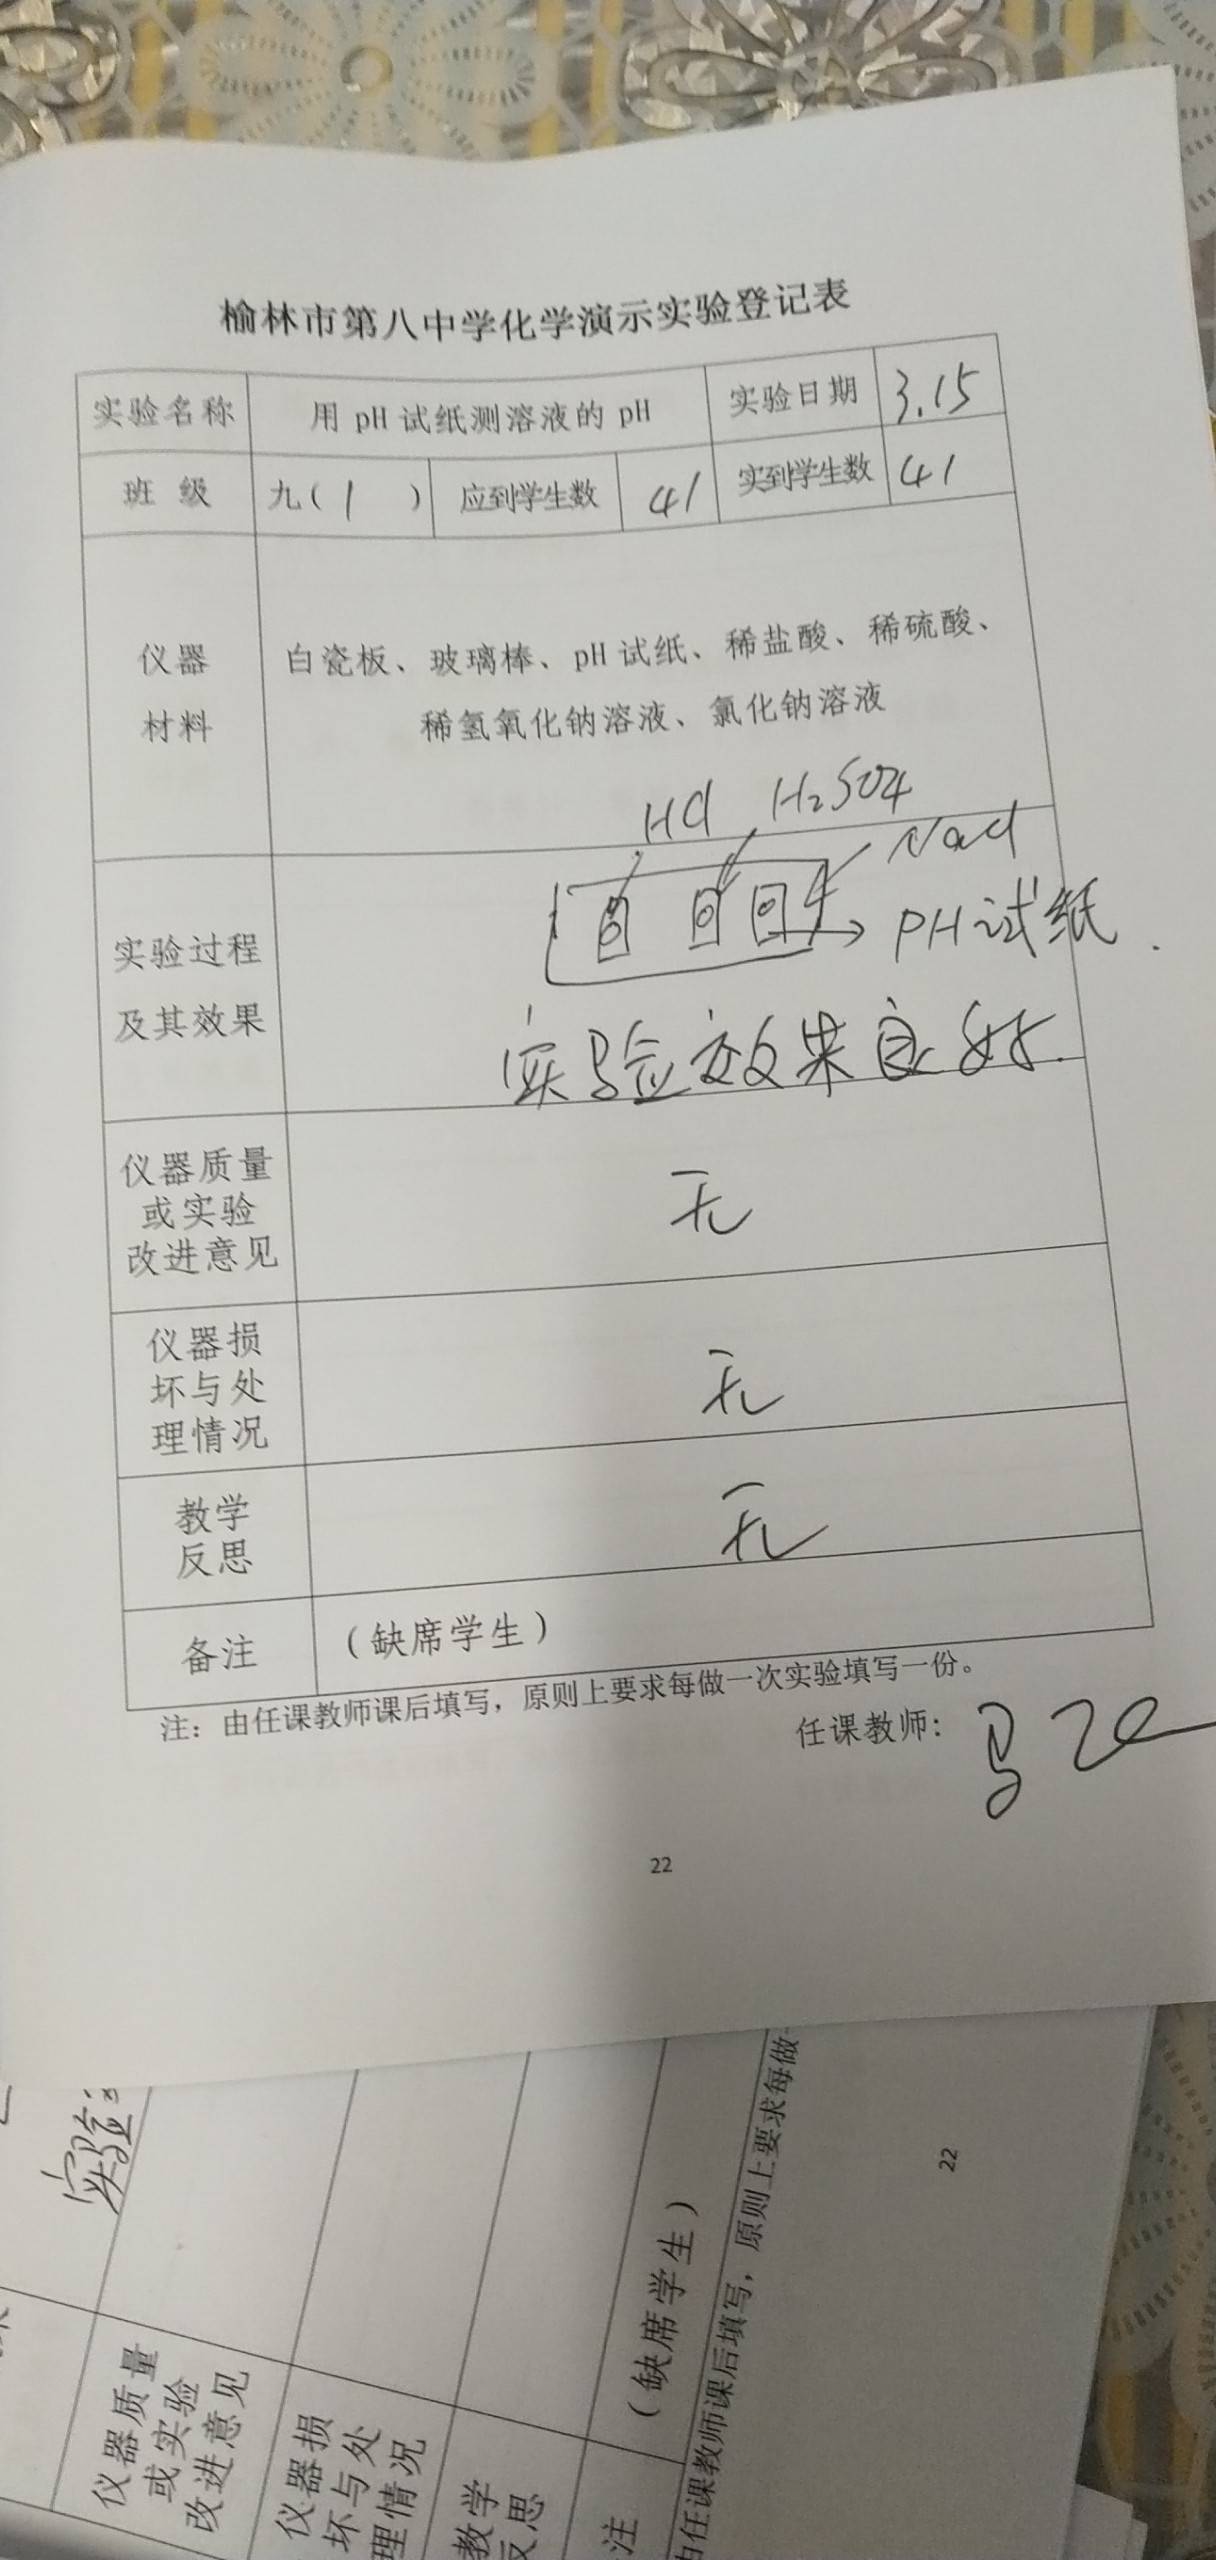 榆林市第八中学化学演示实验登记表
实验名称 用 pH 试纸测溶液的 pH 实验日期 3.15
班 级 九( 1 ) 应到学生数 41 实到学生数 41
仪器
材料
白瓷板、玻璃棒、pH 试纸、稀盐酸、稀硫酸、
稀氢氧化钠溶液、氯化钠溶液
HCl H₂SO4
NaCl
PH试纸
实验过程
及其效果
实验效果良好.
仪器质量
或实验
改进意见
无
仪器损
坏与处
理情况
无
教学
反思
无
备注 (缺席学生)
注：由任课教师课后填写，原则上要求每做一次实验填写一份。
任课教师：
22
实验
仪器质量
或实验
改进意见
仪器损
坏与处
理情况
教学
反思
注
(缺席学生)
由任课教师课后填写，原则上要求每做一
22